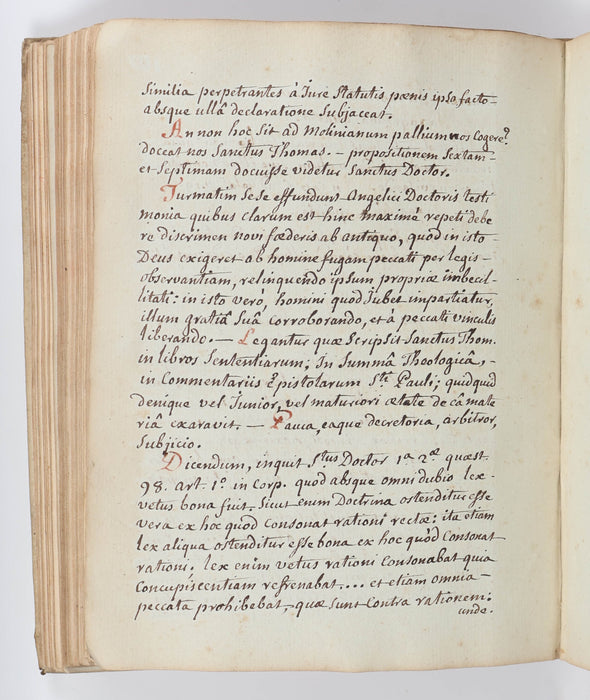 Similia perpetrantes à Jure Statutis pœnis ipso facto
absque ullâ declaratione Subjaceat.
An non hoc Sit ad Molinianum pallium nos Cogere?
doceat nos Sanctus Thomas. — propositionem Sextam
et Septimam docuisse videtur Sanctus Doctor.
Turmatim Se Se effundunt Angelici Doctoris testi
monia quibus clarum est hinc maximé repeti debe
re discrimen novi fœderis ab antiquo, quòd in isto
Deus exigeret ab homine fugam peccati per legis
observantiam, relinquendo ipsum propriæ imbecil
litati: in isto verò, homini quod Jubet impartiatur,
illum gratiâ Suâ corroborando, et à peccati vinculis
liberando. — Legantur quæ Scripsit Sanctus Thom.
in libros Sententiarum; In Summâ Theologicâ,
in Commentariis Epistolarum Sti Pauli; quidquid
denique vel Junior, vel maturiori ætate de eâ mate
riâ exaravit. — Pauca, eaque decretoria, arbitror,
Subjicio.
Dicendum, inquit Stus Doctor 1a 2æ quæst.
98. art. 1o. in Corp. quòd absque omni dubio lex
vetus bona fuit. Sicut enim Doctrina ostenditur esse
vera ex hoc quòd Consonat rationi rectæ: ita etiam
lex aliqua ostenditur esse bona ex hoc quòd Consonat
rationi. lex enim vetus rationi Consonabat quia
Concupiscentiam refrenabat.... et etiam omnia
peccata prohibebat, quæ Sunt Contra rationem.
unde.